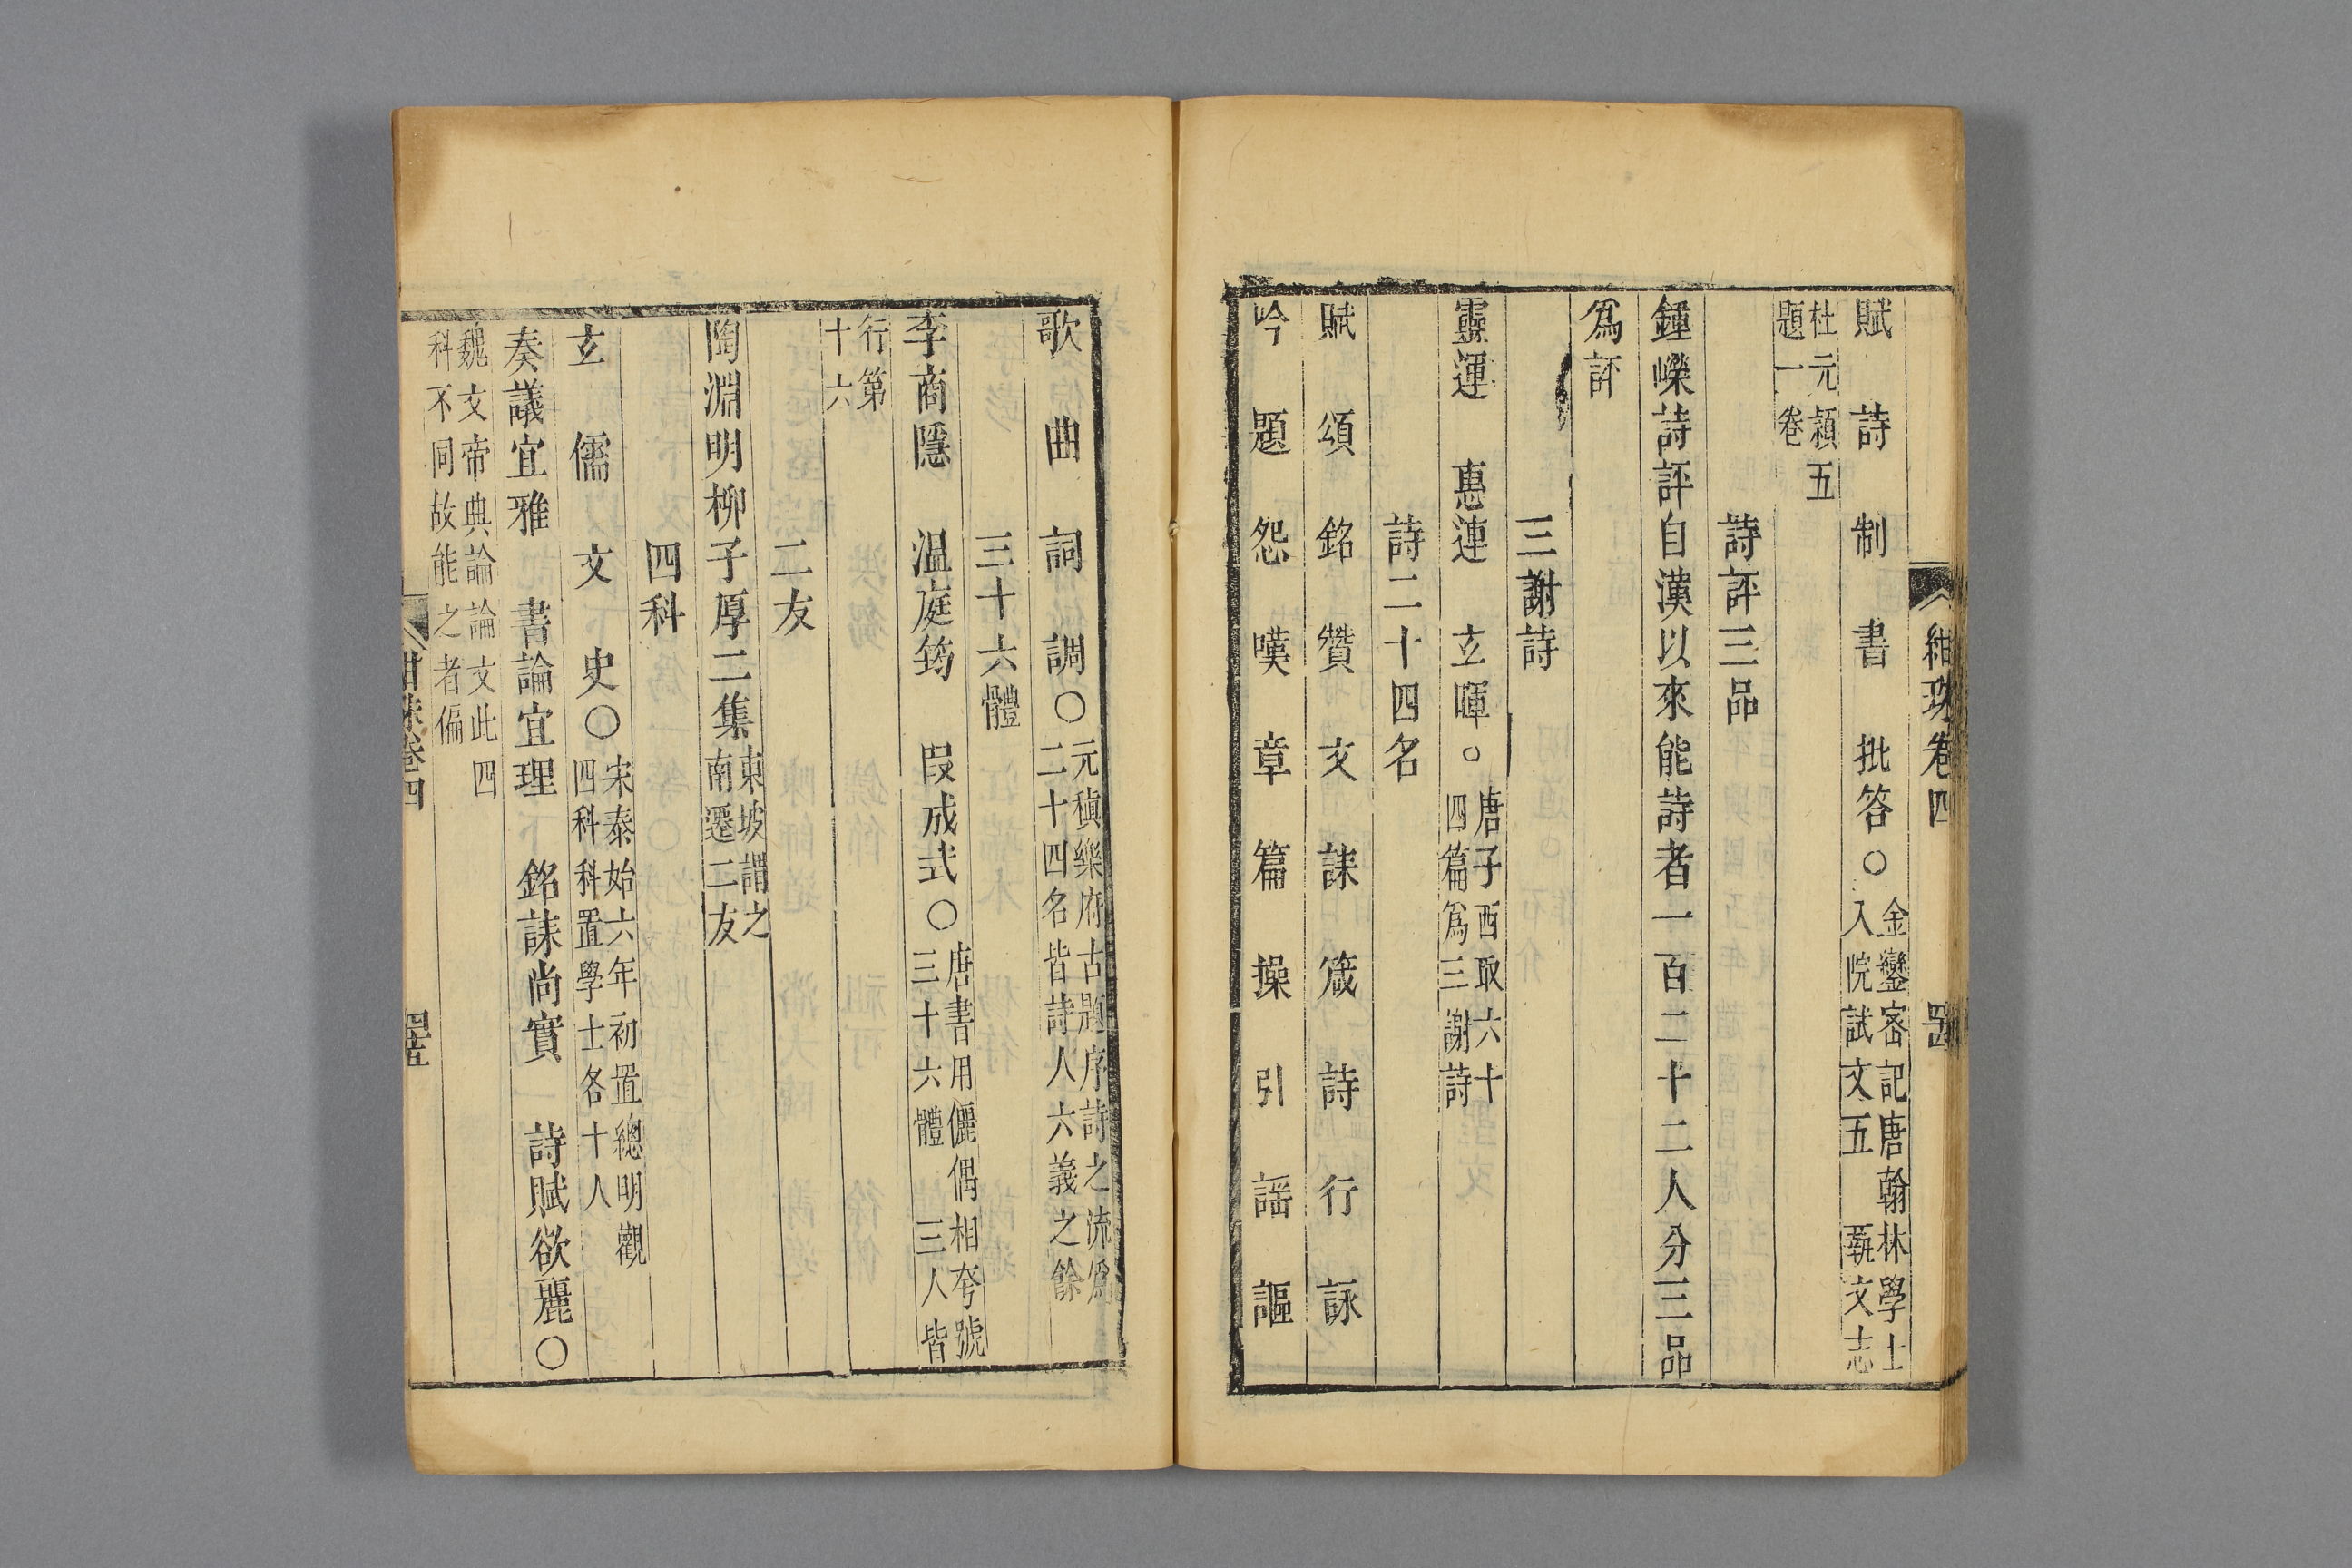 紺珠卷四
賦 詩 制 書 批答○金鑾密記唐翰林學士
入院試文五 藝文志
杜元穎五
題一卷
詩評三品
鍾嶸詩評自漢以來能詩者一百二十二人分三品
爲評
三謝詩
靈運 惠連 玄暉○唐子西取六十
四篇爲三謝詩
詩二十四名
賦 頌 銘 贊 文 誄 箴 詩 行 詠
吟 題 怨 嘆 章 篇 操 引 謡 謳
歌 曲 詞 調○元稹樂府古題序詩之流爲
二十四名皆詩人六義之餘
三十六體
李商隱 温庭筠 段成式○唐書用儷偶相夸號
三十六體 三人皆
行第
十六
二友
陶淵明柳子厚二集東坡謂之
南遷二友
四科
玄 儒 文 史○宋泰始六年初置總明觀
四科科置學士各十人
奏議宜雅 書論宜理 銘誄尚實 詩賦欲麗○
魏文帝典論論文此四
科不同故能之者偏